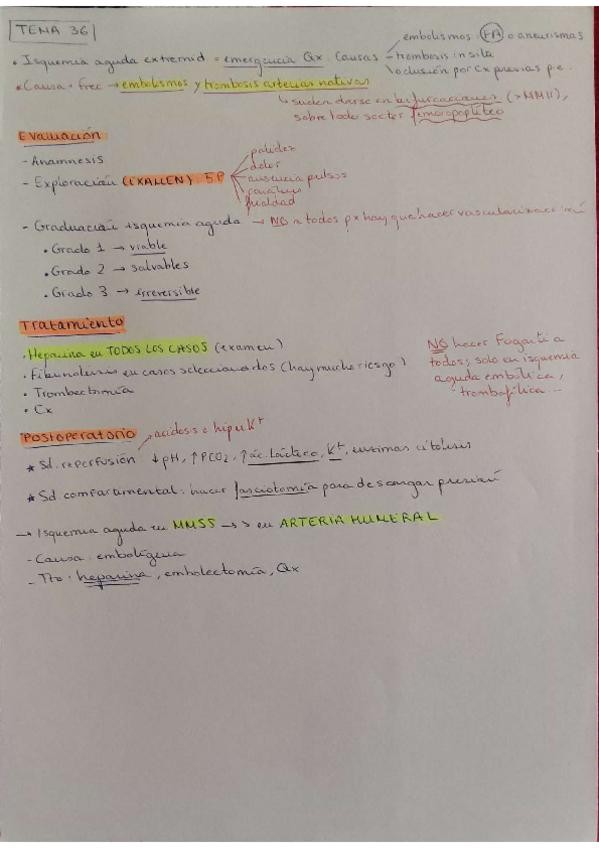 TEMA 36
• Isquemia aguda extremid = emergencia Qx. Causas
embolismos: FA o aneurismas
trombosis in situ
oclusión por Cx previas p.e.
• Causa + frec → embolismos y trombosis arterias nativas
↳ suelen darse en bifurcaciones (> MMII),
sobre todo sector femoropoplíteo
Evaluación
- Anamnesis
- Exploración (EXAMEN): 5P
palidez
dolor
ausencia pulsos
parálisis
frialdad
- Graduación isquemia aguda → NO a todos px hay que hacer vascularización
• Grado 1 → viable
• Grado 2 → salvables
• Grado 3 → irreversible
Tratamiento
• Heparina en TODOS LOS CASOS (examen)
• Fibrinolisis en casos seleccionados (hay mucho riesgo)
• Trombectomía
• Cx
NO hacer Fogarti a
todos; solo en isquemia
aguda embólica,
trombofílica...
Postoperatorio
acidosis e hiperK+
★ Sd. reperfusión ↓pH, ↑PCO2, ↑ác. láctico, K+, enzimas citólisis
★ Sd. compartamental: hacer fasciotomía para descargar presión
→ Isquemia aguda en MMSS → > en ARTERIA HUMERAL
- Causa: embolígena
- Tto: heparina, embolectomía, Qx